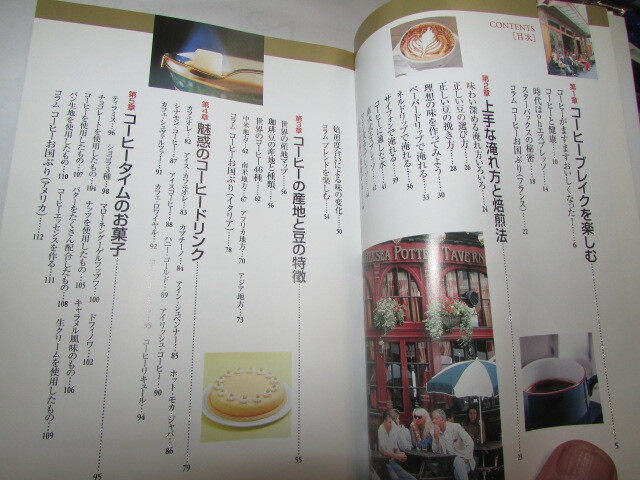 CONTENTS
[目次]
第1章 コーヒーブレイクを楽しむ 5
コーヒーがますますおいしくなった 6
コーヒーと健康 10
時代はOhエスプレッソ 14
スターバックスの秘密 18
コラム コーヒーお国ぶり(フランス) 22
第2章 上手な淹れ方と焙煎法
味わい深める淹れ方いろいろ 24
正しい豆の選び方 26
正しい豆の挽き方 28
理想の味を作ってみよう 30
ペーパードリップで淹れる 33
ネルドリップで淹れる 36
サイフォンで淹れる 39
コーヒーに適した水 41
焙煎度合いによる味の変化 50
コラム ブレンドを楽しむ 54
CHELSEA POTTER TAVERN
第3章 コーヒーの産地と豆の特徴 55
世界の産地マップ 56
珈琲豆の産地と種類 56
世界のコーヒー46種 62
中米地方 62 南米地方 67 アフリカ地方 70 アジア地方 73
コラム コーヒーお国ぶり(イタリア) 78
第4章 魅惑のコーヒードリンク 79
カフェオレ 82 アイス・カフェオレ 83 カプチーノ 84 アイン・シュペンナー 85 ホット・モカ・ジャバ 86
シナモン・コーヒー 87 アイスコーヒー 88 ハニー・コールド 89 アイリッシュ・コーヒー 90
カフェ・シュヴァルツァー 91 カフェ・ロワイヤル 92 93 コーヒーリキュール 94
第5章 コーヒータイムのお菓子 95
ティラミス 96 ショコラ3種 98 マローネンターゲルフップフ 100 ドフィノワ 102
チョコレートを使用したもの 104 ナッツを使用したもの 105 キャラメル風味のもの 106
コーヒーを使用したもの 107 バターをたくさん配合したもの 108 生クリームを使用したもの 109
パン生地を使用したもの 110 コーヒーエッセンスを作る 111
コラム コーヒーお国ぶり(アメリカ) 112